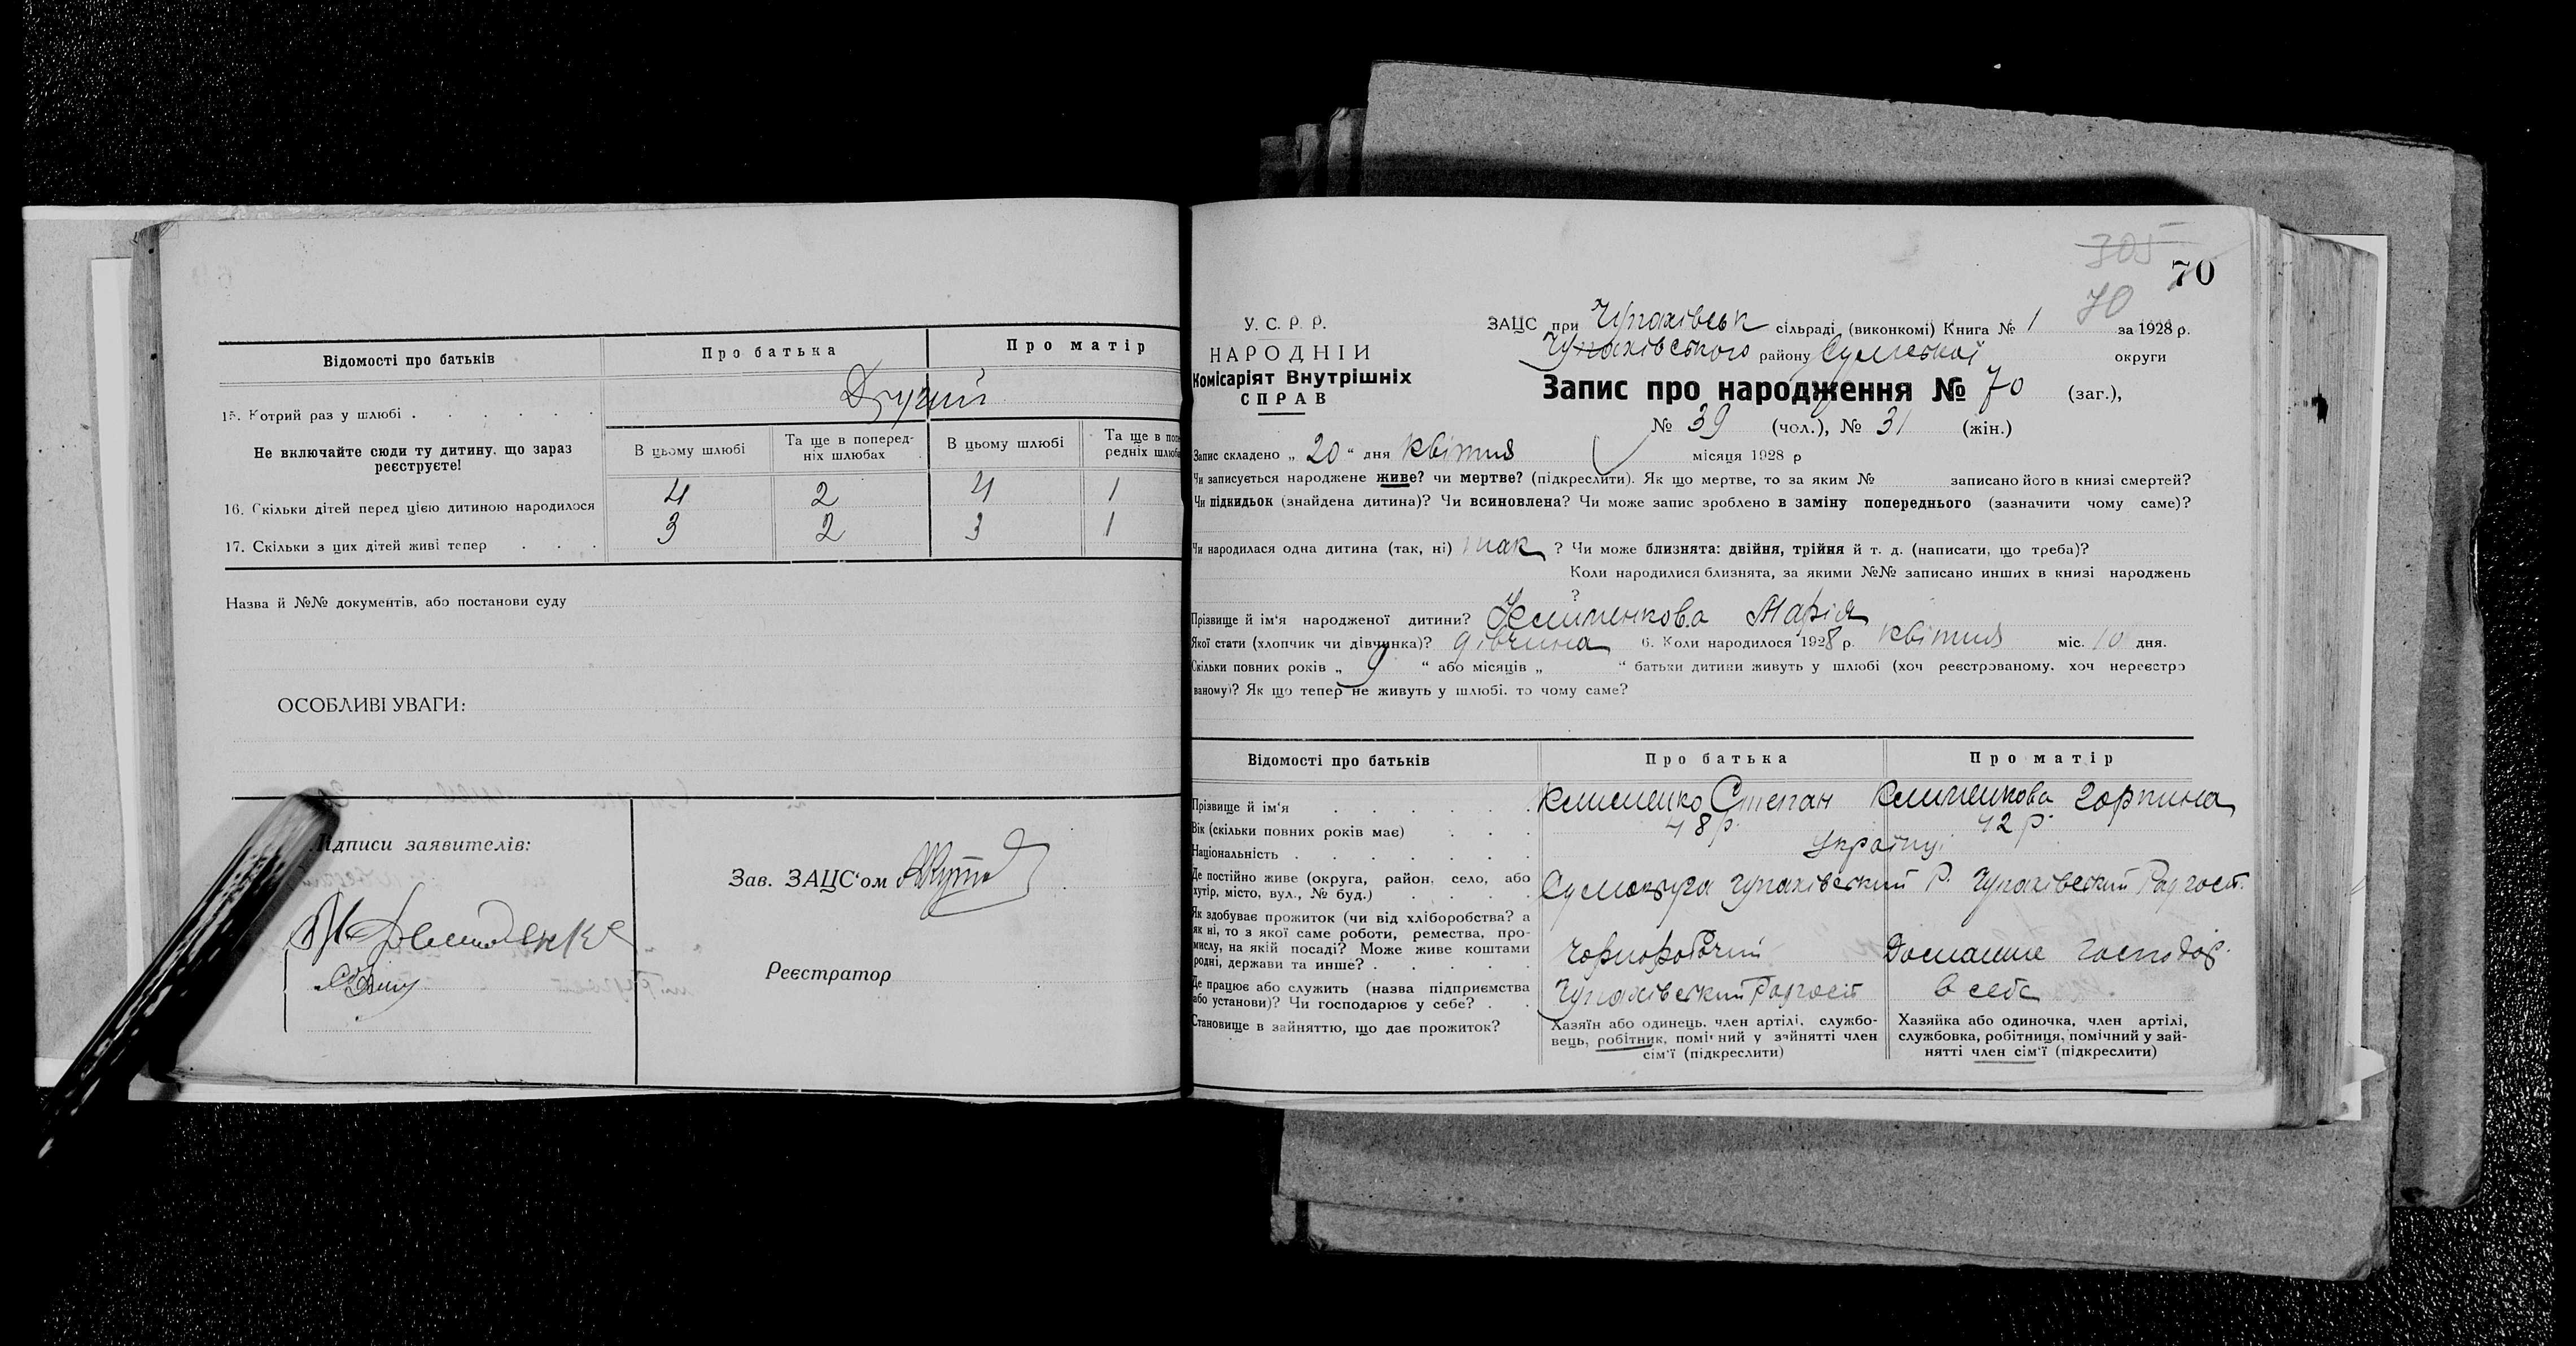 Відомості про батьків
Про батька
Про матір
15. Котрий раз у шлюбі
Другий
Не включайте сюди ту дитину, що зараз реєструєте!
В цьому шлюбі
Та ще в попередніх шлюбах
В цьому шлюбі
Та ще в попередніх шлюбах
16. Скільки дітей перед цією дитиною народилося
4 2 4 1
17. Скільки з цих дітей живі тепер
3 2 3 1
Назва й №№ документів, або постанови суду
ОСОБЛИВІ УВАГИ:
Підписи заявителів:
Зав. ЗАЦС'ом
Реєстратор
305
70
70
У. С. Р. Р.
НАРОДНІЙ
Комісаріят Внутрішніх
СПРАВ
ЗАЦС при Чупахівськ сільраді (виконкомі) Книга № 1 за 1928 р.
Чупахівського району Сумської округи
Запис про народження № 70 (заг.),
№ 39 (чол.), № 31 (жін.)
Запис складено „ 20 “ дня квітня місяця 1928 р
Чи записується народжене живе? чи мертве? (підкреслити). Як що мертве, то за яким № записано його в книзі смертей?
Чи підкидьок (знайдена дитина)? Чи всиновлена? Чи може запис зроблено в заміну попереднього (зазначити чому саме)?
Чи народилася одна дитина (так, ні) так ? Чи може близнята: двійня, трійня й т. д. (написати, що треба)?
Коли народилися близнята, за якими №№ записано инших в книзі народжень
?
Прізвище й ім'я народженої дитини? Клименкова Марія
Якої стати (хлопчик чи дівчинка)? дівчина 6. Коли народилося 1928 р. квітня міс. 10 дня.
Скільки повних років „ 9 “ або місяців „ “ батьки дитини живуть у шлюбі (хоч реєстрованому, хоч нереєстро
ваному)? Як що тепер не живуть у шлюбі, то чому саме?
Відомості про батьків
Про батька
Про матір
Прізвище й ім'я
Клименко Степан
Клименкова Горпина
Вік (скільки повних років має)
48 р.
42 р.
Національність
Українці
Де постійно живе (округа, район, село, або
хутір, місто, вул., № буд.)
Сумокруга Чупахівський Р. Чупахівський Радгосп.
Як здобуває прожиток (чи від хліборобства? а
як ні, то з якої саме роботи, ремества, про-
мислу, на якій посаді? Може живе коштами
родні, держави та инше?
Чорноробочий
Домашнє господар.
Де працює або служить (назва підприємства
або установи)? Чи господарює у себе?
Чупахівський Радгосп
в себе
Становище в зайняттю, що дає прожиток?
Хазяїн або одинець, член артілі, службо-
вець, робітник, помічний у зайнятті член
сім'ї (підкреслити)
Хазяйка або одиночка, член артілі,
службовка, робітниця, помічний у зай-
нятті член сім'ї (підкреслити)